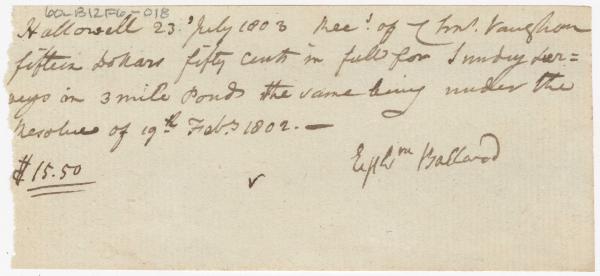 60-B12F6-018
Hallowell 23d July 1803 Recd. of Chs. Vaughan
fifteen Dollars fifty Cents in full for Sundry Ser=
veys in 3 mile Ponds the same being under the
Resolve of 19th Feby 1802. —
$15.50
Ephm Ballard